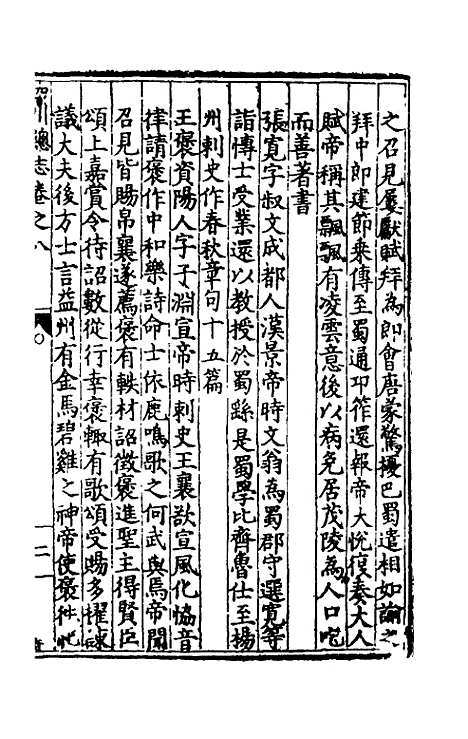 之召見屢獻賦拜為郎會唐蒙驚擾巴蜀遣相如諭之
拜中郎建節乗傳至蜀通卭筰還報帝大悅復奏大人
賦帝稱其飄飄有凌雲意後以病免居茂陵為人口吃
而善著書
張寛字叔文成都人漢景帝時文翁為蜀郡守選寛等
詣博士受業還以教授於蜀繇是蜀學比齊魯仕至揚
州刺史作春秋章句十五篇
王褒資陽人字子淵宣帝時刺史王襄欲宣風化協音
律請褒作中和樂詩命士依鹿鳴歌之何武與焉帝聞
召見皆賜帛襄遂薦褒有軼材詔徴褒進聖王得賢臣
頌上嘉賞令待詔數從行幸褒輙有歌頌受賜多擢諫
議大夫後方士言益州有金馬碧雞之神帝使褒往祀
川總志卷之八
二